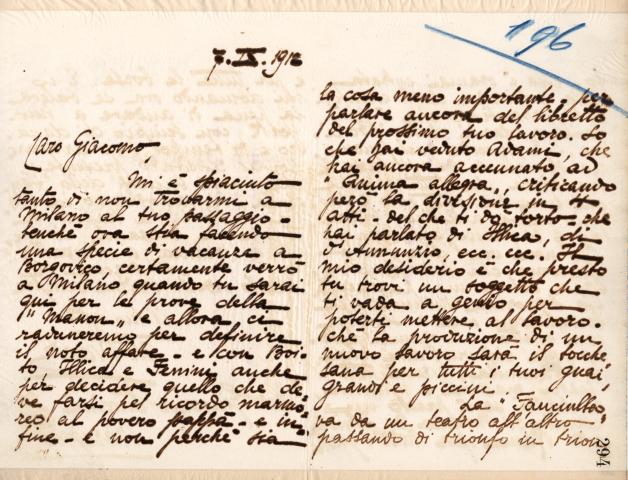 196
7. IX. 1912
Caro Giacomo,
Mi è spiaciuto
tanto, di non trovarmi a
Milano al tuo passaggio -
benchè ora stia facendo
una specie di vacanze a
Borgovico, certamente verrò
a Milano, quando tu sarai
qui per le prove della
"Manon" e allora ci
raduneremo per definire
il noto affare - e con Boi-
to, Illica e Fenini anche
per decidere quello che de-
ve farsi pel ricordo marmo-
reo al povero pappà - e in-
fine - e non perchè sia
la cosa meno importante, per
parlare ancora del libretto
del prossimo tuo lavoro. So
che hai veduto Adami, che
hai ancora accennato ad
"Anima allegra", criticando
però la divisione in
atti - del che ti do torto - che
hai parlato di Illica, di
d'Annunzio, ecc. ecc. Il
mio desiderio è che presto
tu trovi un soggetto che
ti vada a genio per
poterti mettere al lavoro -
chè la produzione di un
nuovo lavoro sarà il tocche
sana per tutti i tuoi guai,
grandi e piccini.
La "Fanciulla"
va da un teatro all'altro
passando di trionfo in trion
294